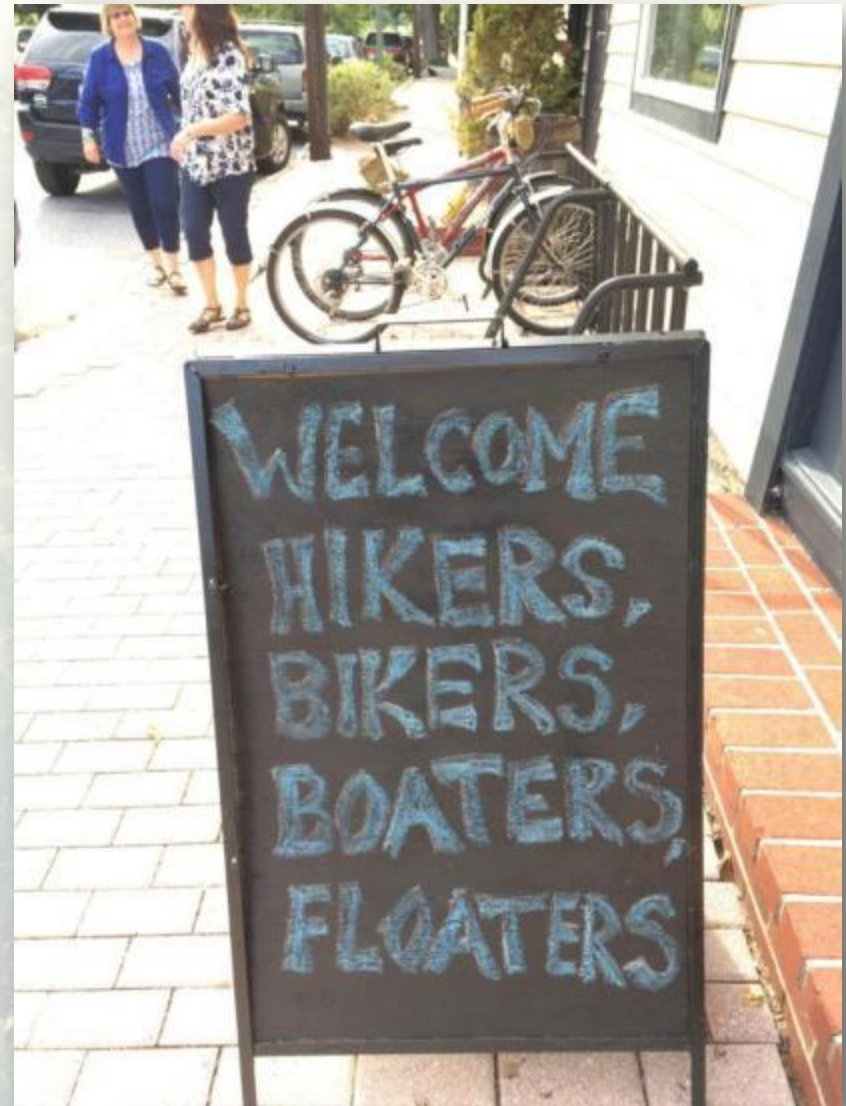 WELCOME
HIKERS,
BIKERS,
BOATERS,
FLOATERS